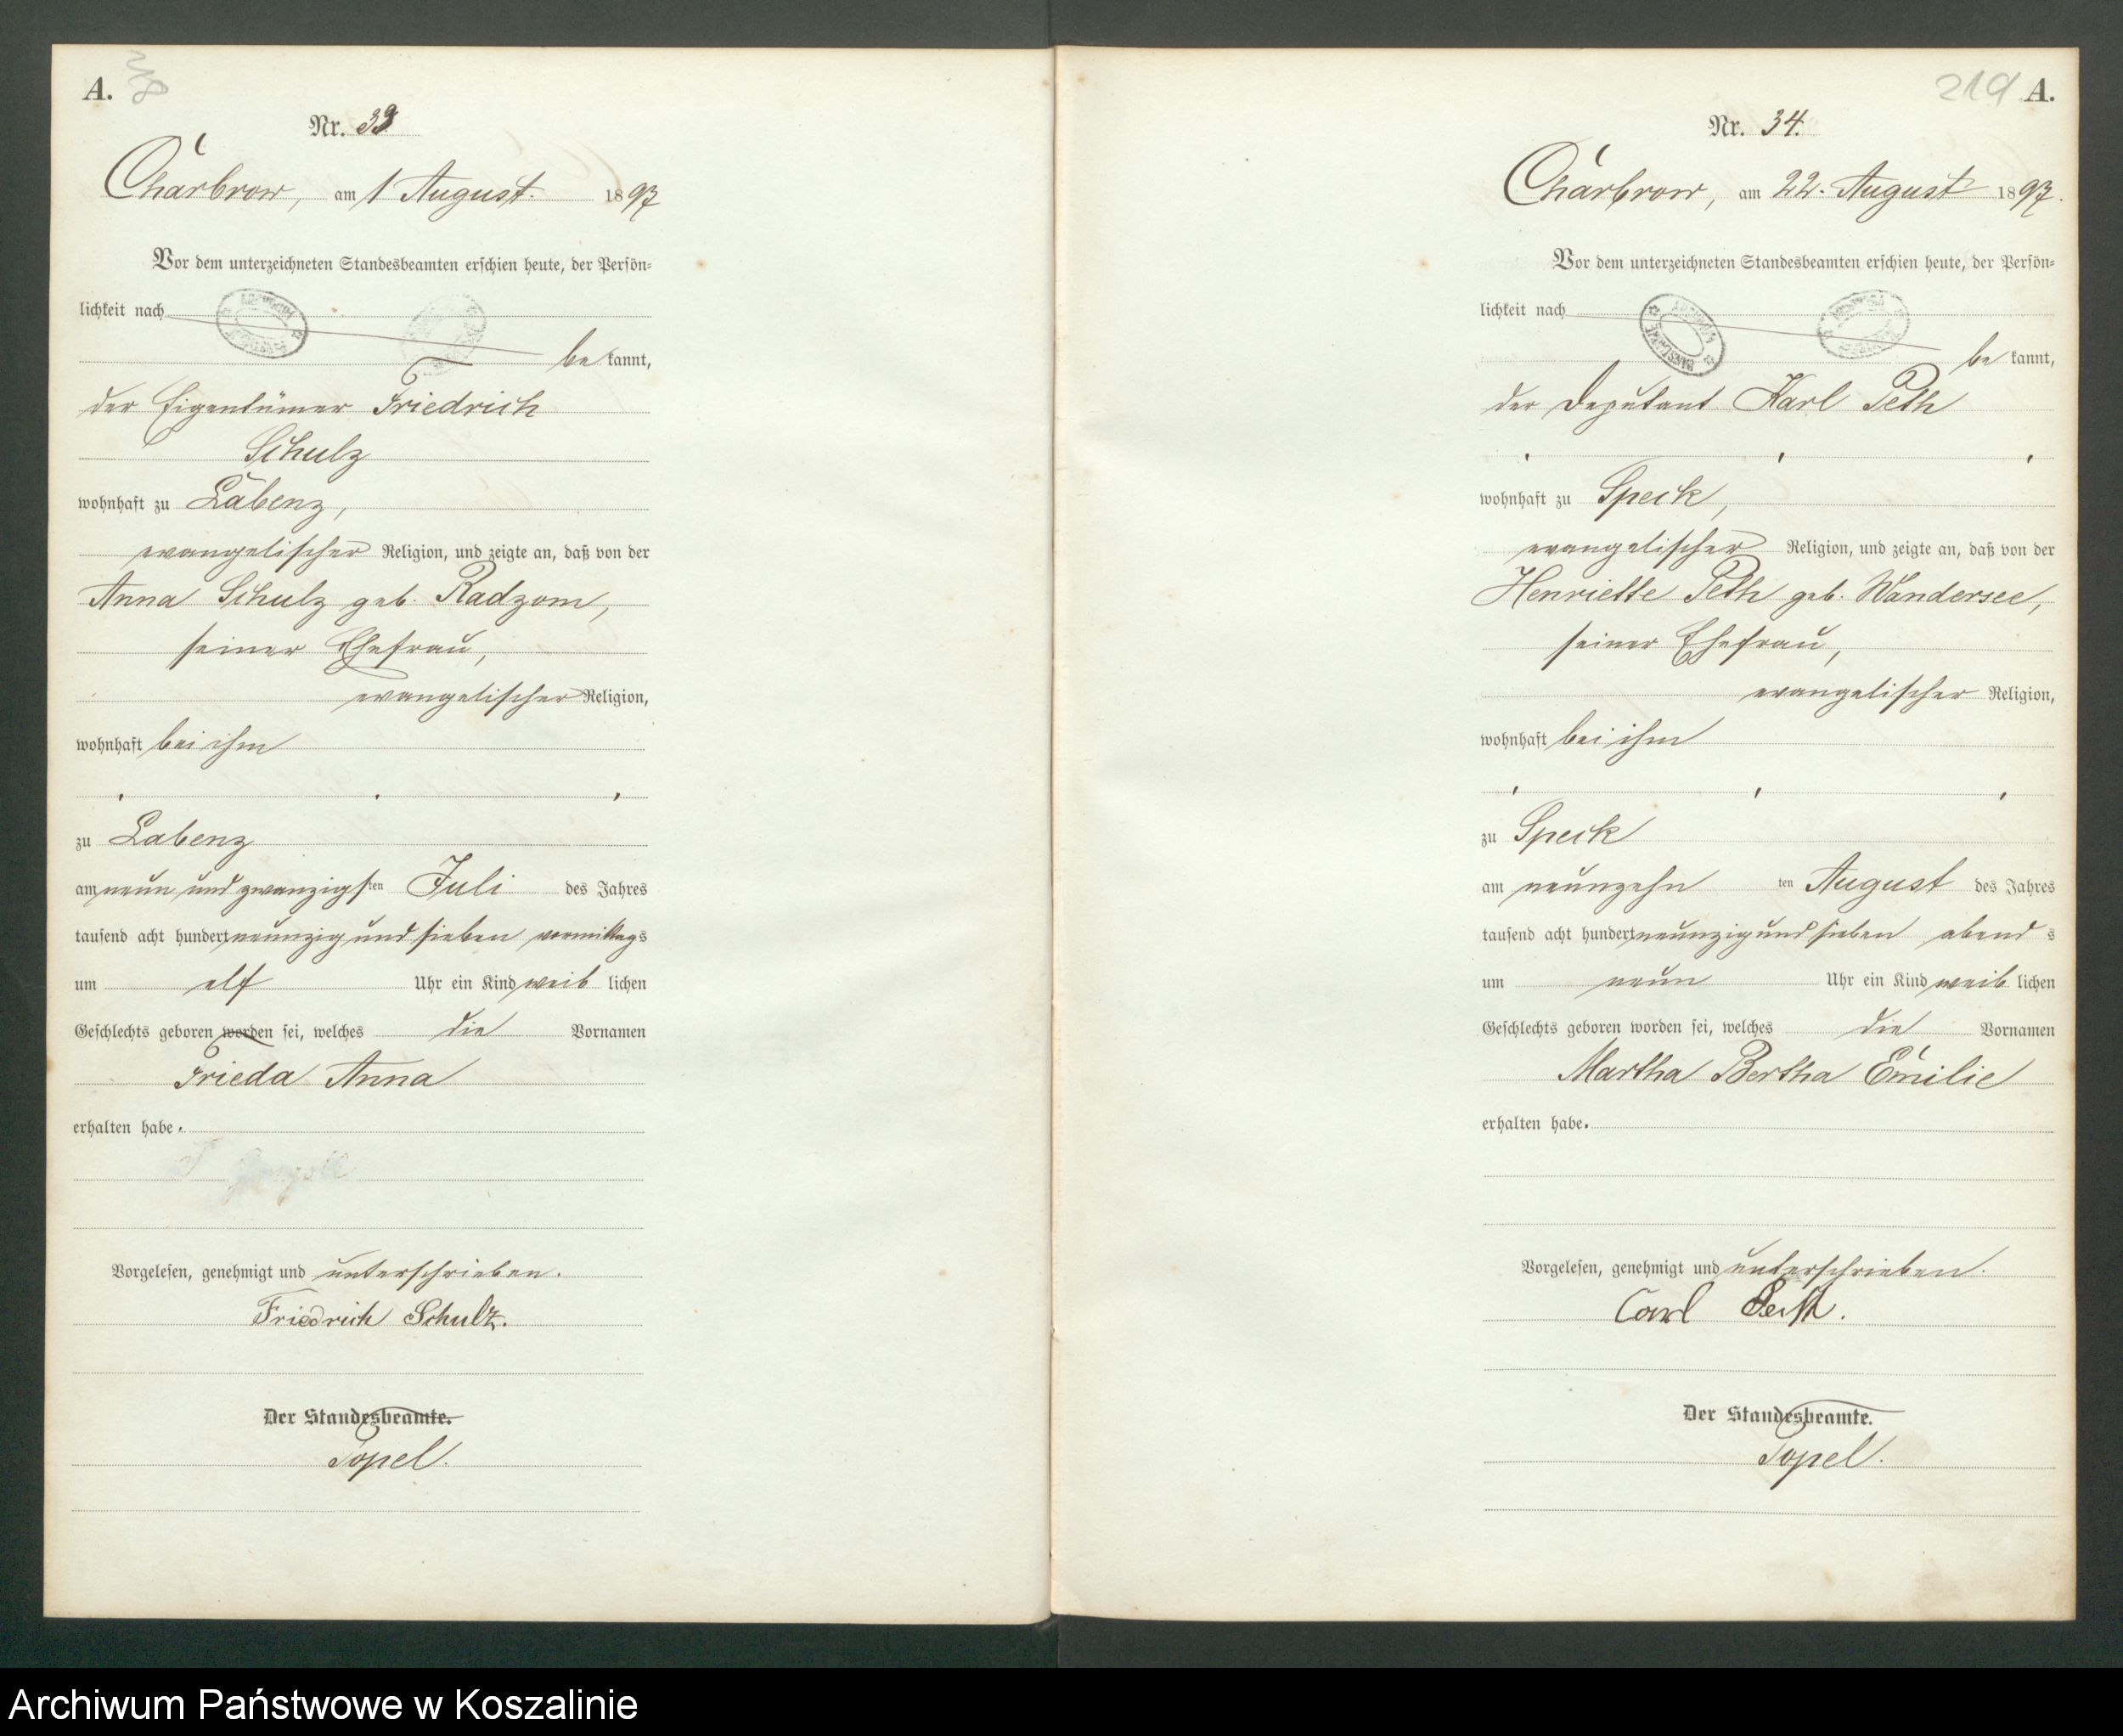 A.
Nr. 33
Charbrow, am 1 August. 1897
Vor dem unterzeichneten Standesbeamten erschien heute, der Persön-
lichkeit nach
be kannt,
der Eigentümer Friedrich
Schulz
wohnhaft zu Labenz,
evangelischer Religion, und zeigte an, daß von der
Anna Schulz geb. Radzom,
seiner Ehefrau,
evangelischer Religion,
wohnhaft bei ihm
zu Labenz
am neun und zwanzigsten Juli des Jahres
tausend acht hundert neunzig und sieben vormittags
um elf Uhr ein Kind weib lichen
Geschlechts geboren worden sei, welches die Vornamen
Frieda Anna
erhalten habe.
Vorgelesen, genehmigt und unterschrieben.
Friedrich Schulz.
Der Standesbeamte.
Topel.
219 A.
Nr. 34.
Charbrow, am 22. August 1897.
Vor dem unterzeichneten Standesbeamten erschien heute, der Persön-
lichkeit nach
be kannt,
der Deputant Karl Peth
wohnhaft zu Speck,
evangelischer Religion, und zeigte an, daß von der
Henriette Peth geb. Wandersee,
seiner Ehefrau,
evangelischer Religion,
wohnhaft bei ihm
zu Speck
am neunzehn ten August des Jahres
tausend acht hundert neunzig und sieben abend s
um neun Uhr ein Kind weib lichen
Geschlechts geboren worden sei, welches die Vornamen
Martha Bertha Emilie
erhalten habe.
Vorgelesen, genehmigt und unterschrieben.
Carl Peth.
Der Standesbeamte.
Topel.
Archiwum Państwowe w Koszalinie